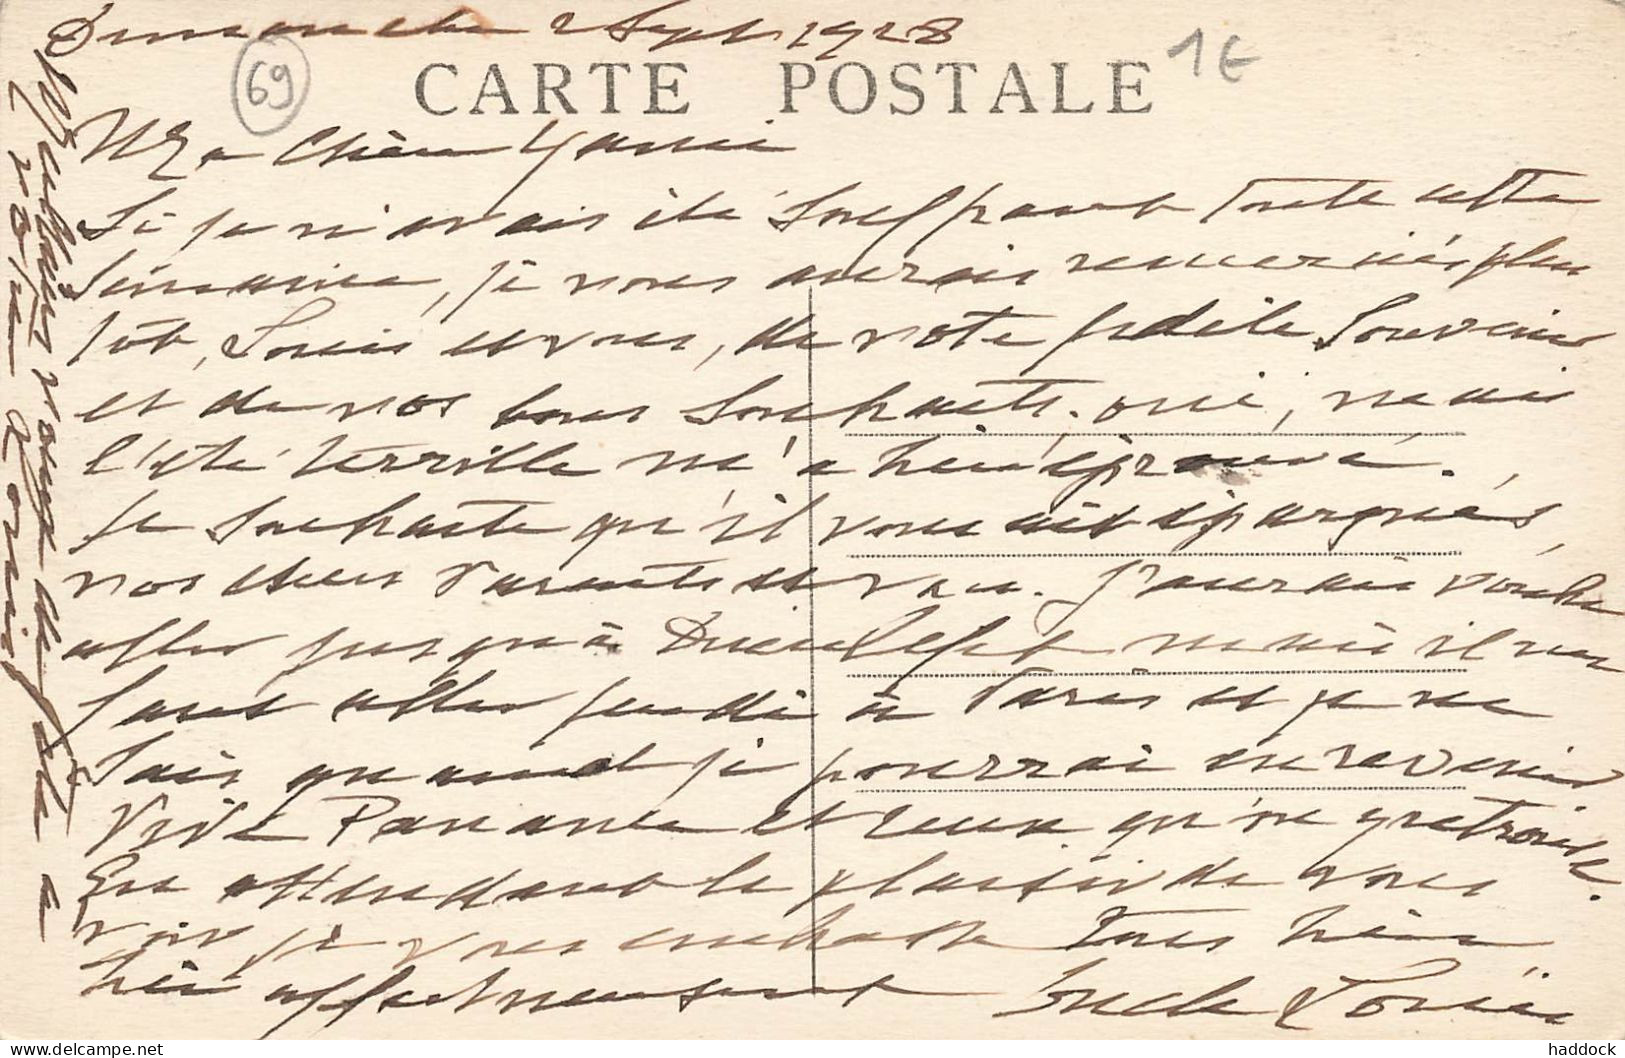 Dimanche 2 Sept 1928
69
CARTE POSTALE
1€
Ma chère
Si je n'avais été souffrant toute cette
semaine, je vous aurais remerciés plus
tôt, Louis et vous, de vote fidèle souvenir
et de vos bons souhaits, oui, mais
l'été terrible m'a bien éprouvé.
Je souhaite qu'il vous ait épargnés,
vos chers parents et vous. J'aurais voulu
aller jusqu'à Dieulefit mais il me
faut aller jeudi à Paris et je ne
sais quand je pourrai en revenir
En attendant le plaisir de vous
voir je vous embrasse tous bien
bien affectueusement Oncle Louis
vous de fête à
Louis
haddock